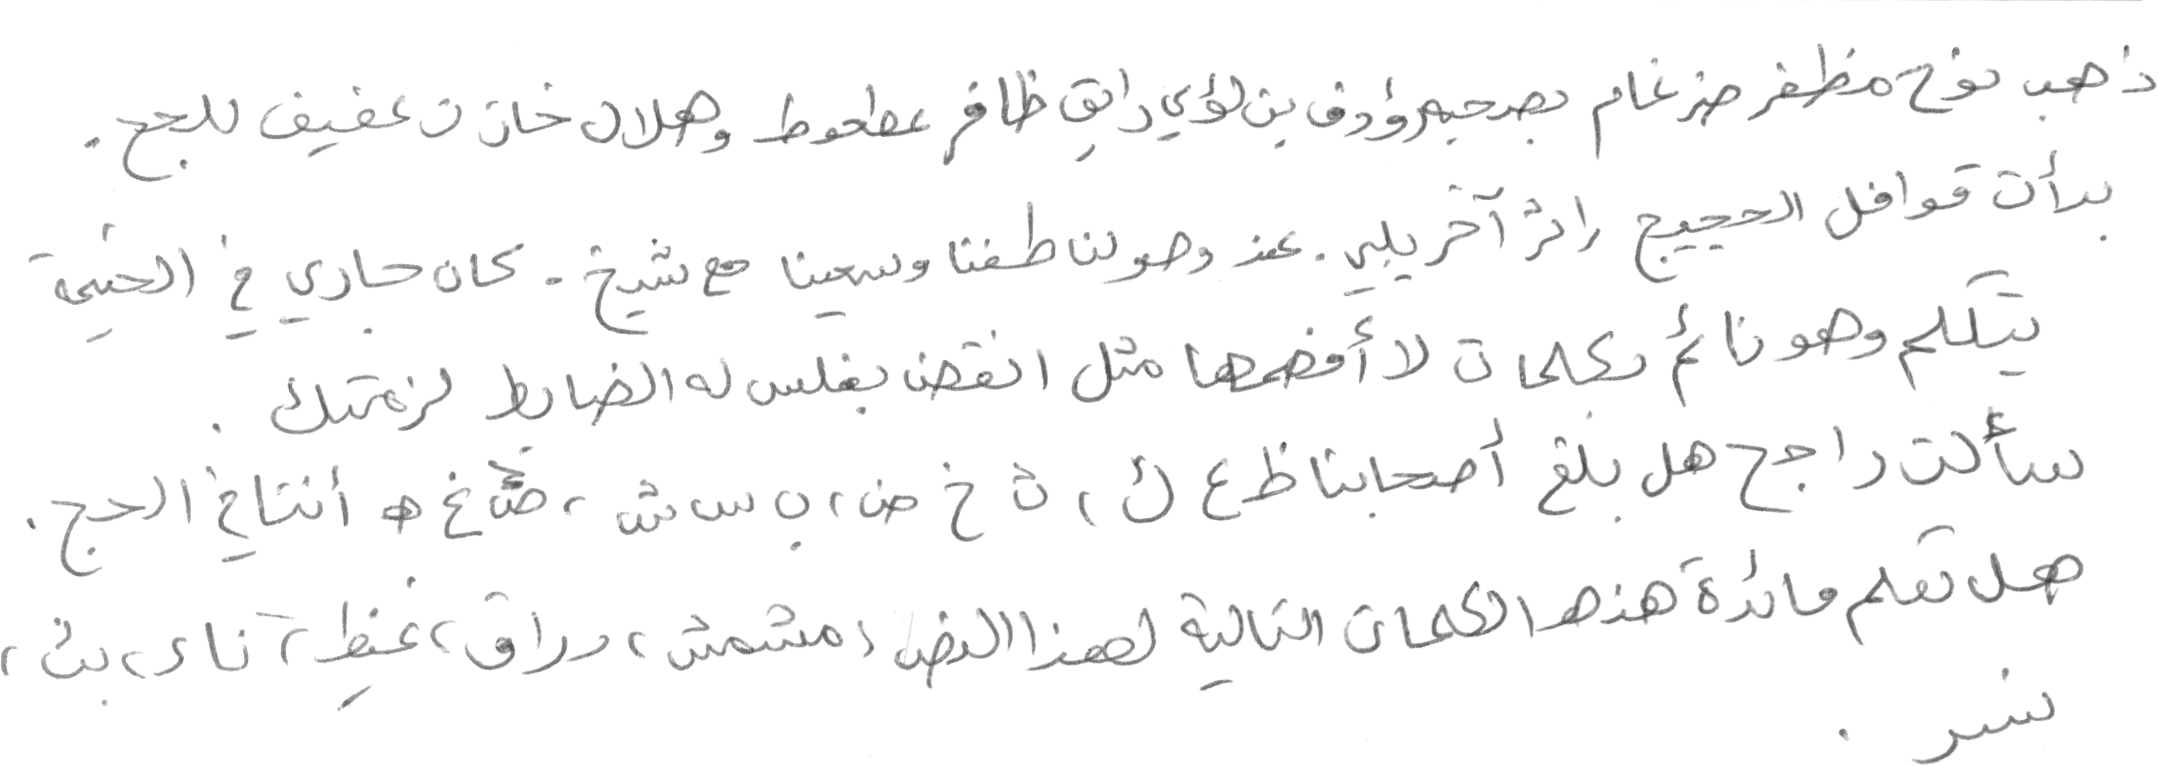 ذهب نوح مظفر ضرغام بصحبه رؤوف بن لؤي رايق ظافر عطعوط وهلال خازن عفيف للحج .
بدأت قوافل الحجيج رائز آخر يلبي . عند وصولنا طفنا وسعينا مع شيخ . كان جاري في الخيمة
يتكلم وهو نائم بكلمات لا أفهمها مثل انقض بغلس له الضابط لزمتك .
سألت راجح هل بلغ أصحابنا ظ ع ك ، ث خ ض ، ب س ش ، ض غ ه أننا في الحج .
هل تعلم فائدة هذه الكلمات التالية لهذا النص ، مشمش ، دراق ، غيظ ، ناء ، بث ،
نسر .